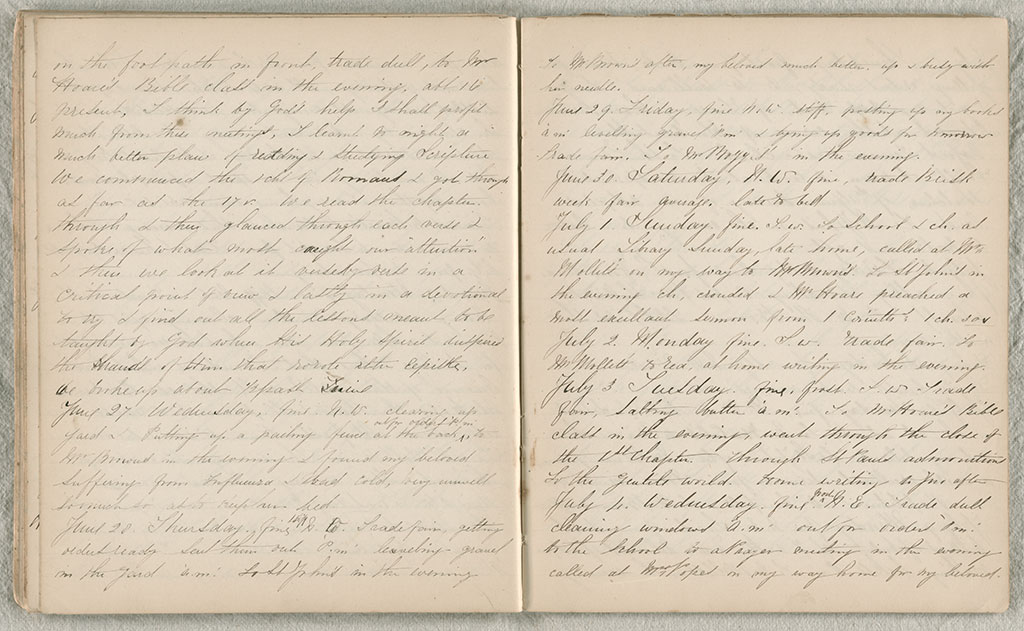 on the foot path in front, trade dull, to Mr
Hoare's Bible class in the evening, abt 16
present, I think by God's help I shall profit
much from these meetings, I learnt to night a
much better plan of reading & studying Scripture
We commenced the of Romans & got through
as far as the 17 v. We read the chapter
through & then glanced through each verse &
spoke of what most caught our attention
& then we look at it verse by verse in a
critical point of view & lastly in a devotional
to try & find out all the lessons meant to be
taught by God when His Holy Spirit inspired
the hands of Him that wrote the Epistle,
we broke up about ½ past nine
June 27. Wednesday, fine N.W. clearing up
out for orders P.m
yard & Putting up a paling fence at the back, to
Mr Brown's in the evening & found my beloved
suffering from Influenza & bad cold, very unwell
so much so as to keep in bed
June 28. Thursday, fine stiff N.W. Trade fair, getting
orders ready sent them out P.m levelling gravel
in the yard a.m. To St John's in the evening
to Mr Brown's after, my beloved much better, up & busy with
her needle.
June 29. Friday, fine N.W. stiff, posting up my books
a.m levelling gravel P.m & tying up goods for tomorrow
trade fair. To Mr in the evening.
June 30. Saturday, N.W. fine, trade Brisk
week fair average. late to bed
July 1. Sunday fine. S.W. To School & ch. as
usual library Sunday, late home, called at Mr
Mollett's on my way to Mr Brown's. To St John's in
the evening ch, crowded & Mr Hoare preached a
most excellent sermon from 1 Corinths 1 ch. 30 v
July 2. Monday fine S.W. Trade fair. To
Mr Mollett's to tea, at home writing in the evening.
July 3 Tuesday, Fine, frost S.W. Trade
fair, Salting butter a.m. To Mr Hoare's Bible
class in the evening, went through the close of
the 1st Chapter. through St Pauls admonition
to the Gentile world. Home writing to after
July 4. Wednesday fine frost N.E. Trade dull
cleaning windows a.m. out for orders P.m.
to the School to a Prayer meeting in the evening
called at Mrs Pope's on my way home for my beloved.